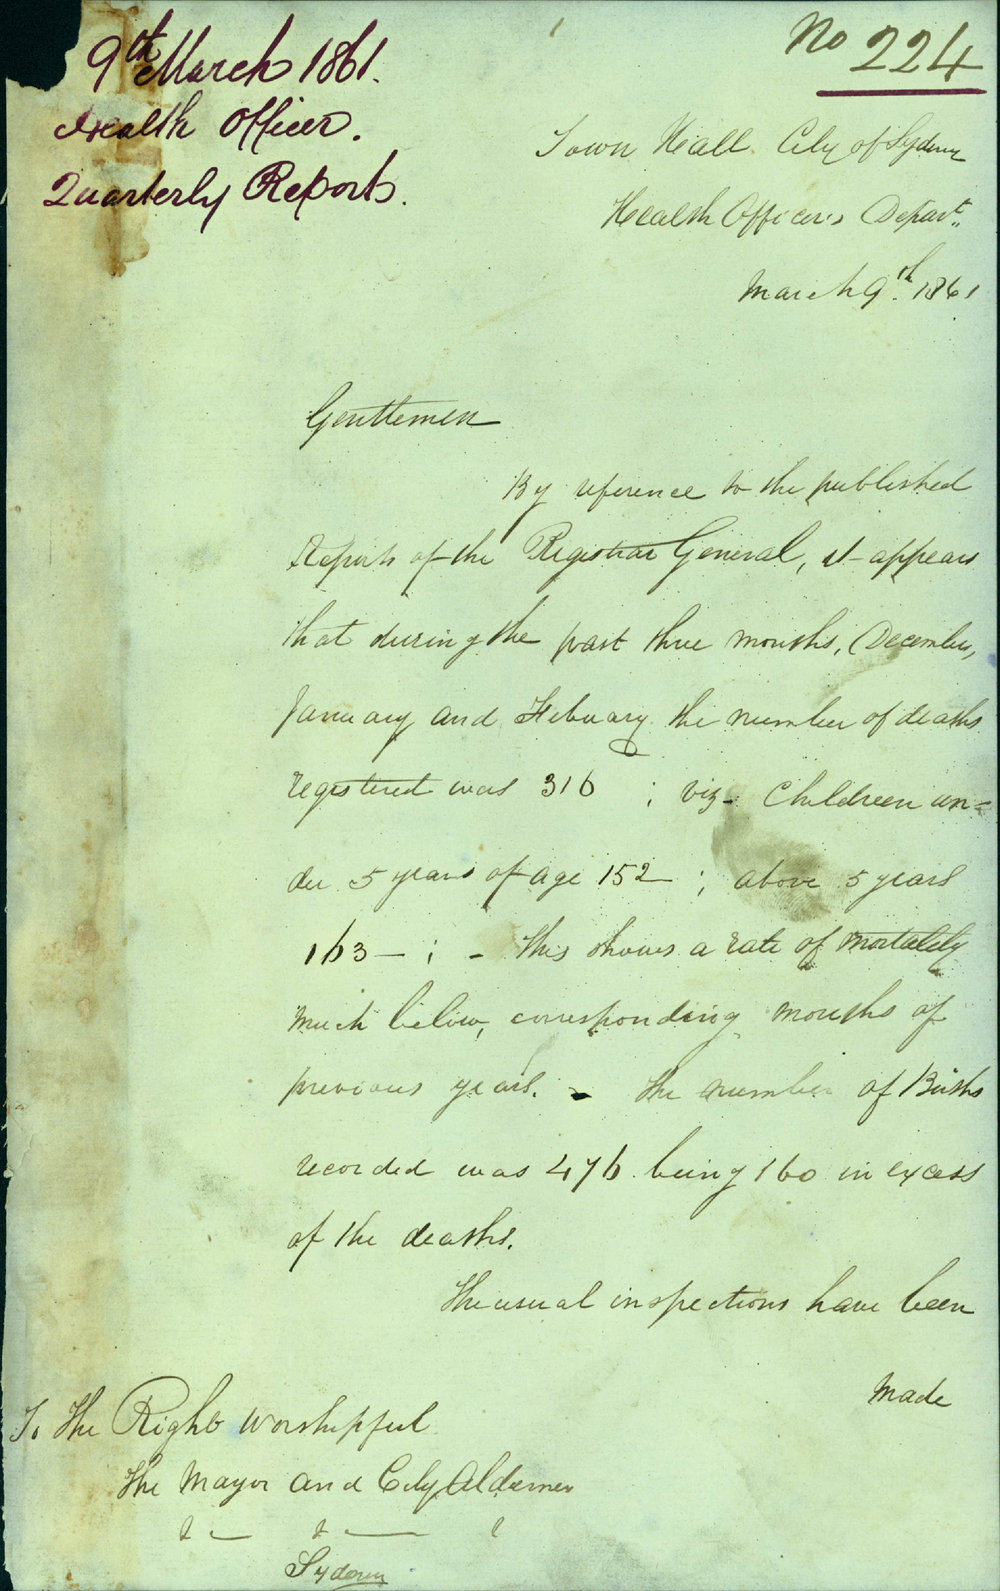 No 224
9th March 1861.
Health Officer.
Quarterly Reports.
Town Hall City of Sydney
Health Officer's Depart.
March 9th 1861
Gentlemen
By reference to the published
Reports of the Registrar General, it appears
that during the past three months, (December,
January and Febuary the number of deaths
registered was 316 ; viz- Childreen un=
der 5 years of age 152 ; above 5 years
163 - ; - this shows a rate of mortality
much below, corresponding months of
previous years. - The number of Births
recorded was 476 being 160 in excess
of the deaths.
The usual inspections have been
made
To The Right Worshipful
The Mayor and City Aldermen
Sydney